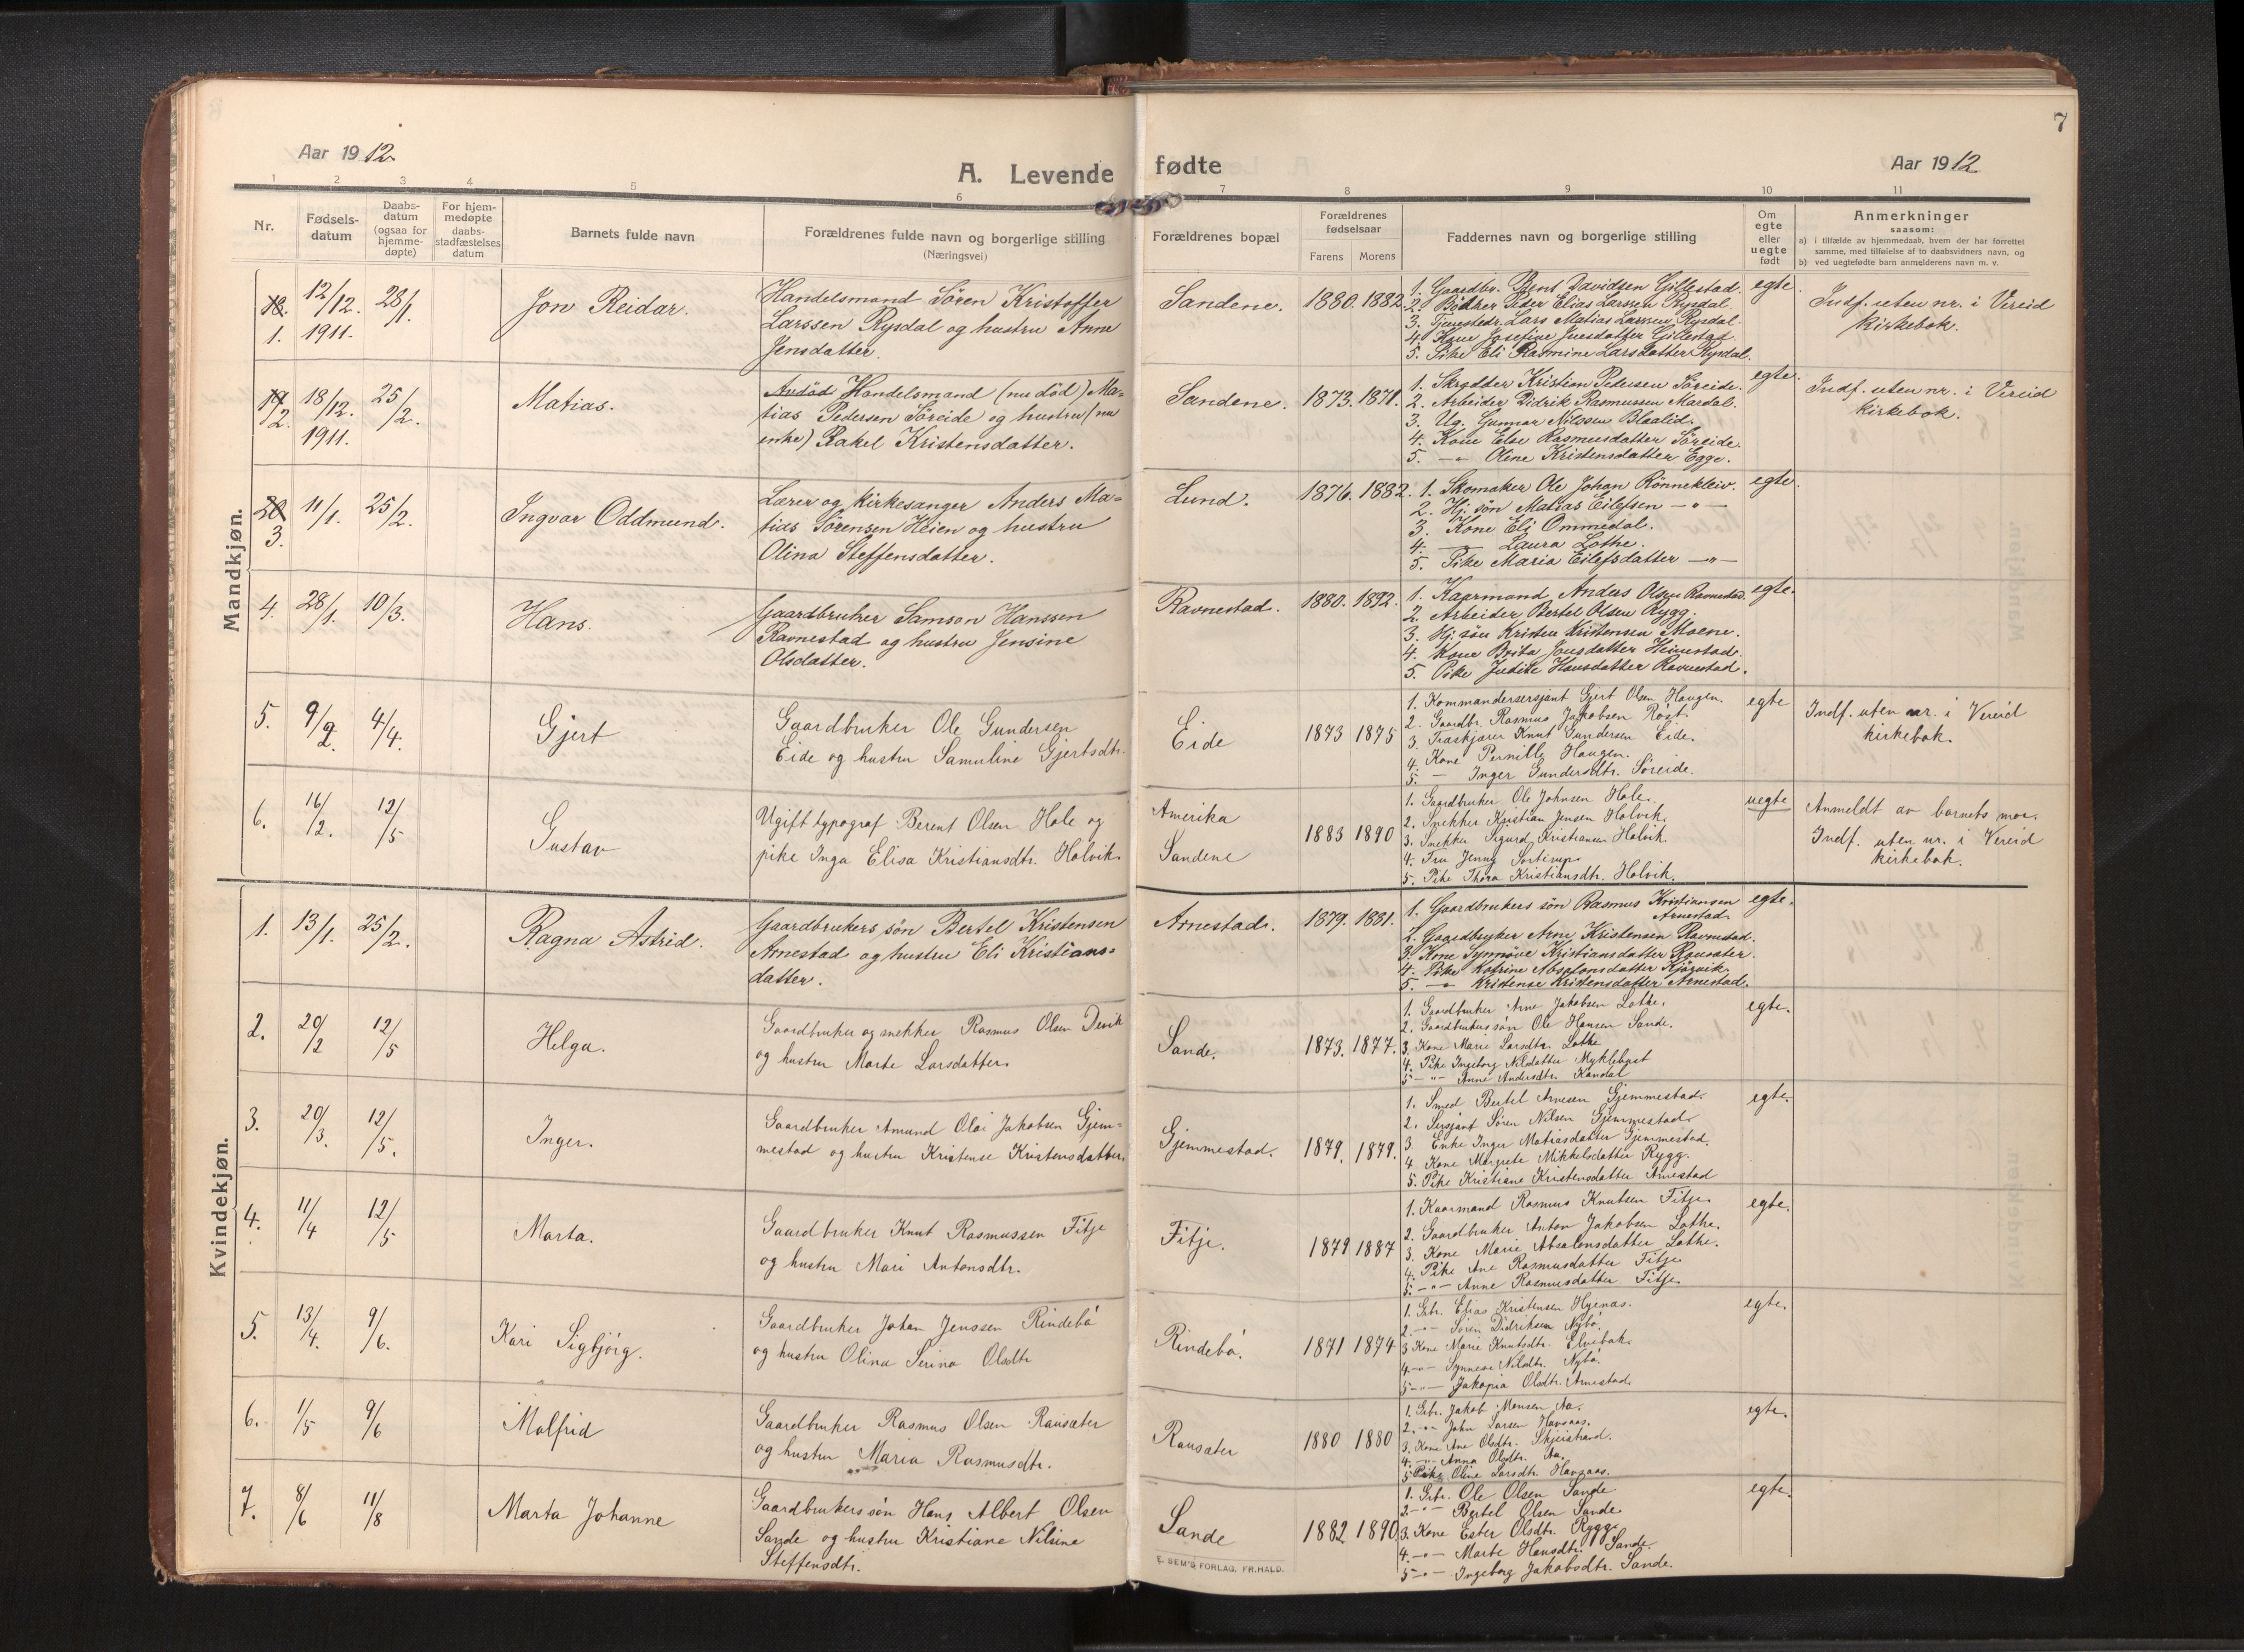 Aar 1912.
A. Levende
1 2 3 4 5 6
Nr.
Fødsels-
datum
Daabs-
datum
(ogsaa for
hjemme-
døpte)
For hjem-
medøpte
daabs-
stadfæstelses
datum
Barnets fulde navn
Forældrenes fulde navn og borgerlige stilling
(Næringsvei)
Mandkjøn.
18.
1.
12/12.
1911.
28/1.
Jon Reidar.
Handelsmand Sören Kristoffer
Larssen Rysdal og hustru Anna
Jensdatter.
19
2.
18/12.
1911.
25/2.
Matias.
Handelsmand (nu död) Ma-
tias Pedersen Söreide og hustru (nu
enke) Rakel Kristensdatter.
20
3.
11/1.
25/2.
Ingvar Oddmund.
Lærer og kirkesanger Anders Ma-
tias Sörensen Heien og hustru
Olina Steffensdatter.
4.
28/1.
10/3.
Hans.
Gaardbruker Samson Hanssen
Ravnestad og hustru Jensine
Olsdatter.
5.
9/2.
4/4.
Gjert
Gaardbruker Ole Gundersen
Eide og hustru Samuline Gjertsdtr.
6.
16/2.
12/5
Gustav
Ugift typograf Berent Olsen Hole og
pike Inga Elisa Kristiansdtr. Holvik.
Kvindekjøn.
1.
13/1.
25/2.
Ragna Astrid.
Gaardbrukers sön Bertel Kristensen
Arnestad og hustru Eli Kristians-
datter.
2.
20/2
12/5
Helga.
Gaardbruker og snekker Rasmus Olsen Devik
og hustru Marte Larsdatter.
3.
20/3.
12/5.
Inger.
Gaardbruker Amund Olai Jakobsen Gjem-
mestad og hustru Kristense Kristensdatter.
4.
11/4
12/5
Marta.
Gaardbruker Knut Rasmussen Fitje
og hustru Mari Antonsdtr.
5.
13/4.
9/6.
Kari Sigbjörg.
Gaardbruker Johan Jenssen Rindebö
og hustru Olina Serina Olsdtr
6.
1/5
9/6
Malfrid
Gaardbruker Rasmus Olsen Rausæter
og hustru Maria Rasmusdtr.
7.
8/6
11/8
Marta Johanne
Gaardbrukers sön Hans Albert Olsen
Sande og hustru Kristiane Nilsine
Steffensdtr.
7
fødte
Aar 1912
7 8 9 10 11
Forældrenes bopæl
Forældrenes
fødselsaar
Farens Morens
Faddernes navn og borgerlige stilling
Om
egte
eller
uegte
født
Anmerkninger
saasom:
a) i tilfælde av hjemmedaab, hvem der har forrettet
samme, med tilføielse af to daabsvidners navn, og
b) ved uegtefødte barn anmelderens navn m. v.
Sandene. 1880. 1882.
1. Gaardbr. Bent Davidsen Gillestad.
2. Bödker Peder Elias Larssen Rysdal.
3. Tjenestedr. Lars Matias Larssen Rysdal.
4. Kone Josefine Jensdatter Gillestad
5. Pike Eli Rasmine Larsdatter Rysdal.
egte.
Indf. uten nr. i Vereid
kirkebok.
Sandene. 1873. 1871.
1. Skrædder Kristian Pedersen Söreide.
2. Arbeider Didrik Rasmussen Mardal.
3. Ug. Gunnar Nilssen Blaalid.
4. Kone Else Rasmusdatter Söreide.
5. —"— Oline Kristensdatter Egge.
egte.
Indf. uten nr. i Vereid
kirkebok.
Lund. 1876. 1882.
1. Skomaker Ole Johan Rönnekleiv.
2. Hj. sön Matias Eilefsen —"—
3. Kone Eli Ommedal.
4. — Laura Lothe.
5. Pike Maria Eilefsdatter —"—
egte.
Ravnestad. 1880. 1892.
1. Kaarmand Anders Olsen Ravnestad.
2. Arbeider Bertel Olsen Rygg.
3. Hj. sön Kristen Kristensen Moene.
4. Kone Brita Jensdatter Heimstad.
5. Pike Judite Hansdatter Ravnestad.
egte.
Eide 1873 1875
1. Kommandersersjant Gjert Olsen Haugen.
2. Gaardbr. Rasmus Jakobsen Roset.
3. Træskjærer Knut Gundersen Eide.
4. Kone Pernille Haugen.
5. — Inger Gundersdtr. Söreide.
egte
Indf. uten nr. i Vereid
kirkebok.
Amerika
Sandene
1883 1890
1. Gaardbruker Ole Johnsen Hole.
2. Snekker Kristian Jensen Holvik.
3. Snekker Sigurd Kristiansen Holvik.
4. Fru Jenny Sorterup.
5. Pike Thora Kristiansdtr. Holvik.
uegte
Anmeldt av barnets mor.
Indf. uten nr. i Vereid
kirkebok.
Arnestad. 1879. 1881.
1. Gaardbrukers sön Rasmus Kristiansen
Arnestad.
2. Gaardbruker Arne Kristensen Ravnestad.
3. Kone Synnöve Kristiansdatter Rausæter.
4. Pike Katrine Absalonsdatter
5. —"— Kristense Kristensdatter Arnestad.
egte.
Sande. 1873. 1877.
1. Gaardbruker Arne Jakobsen Lothe.
2. Gaardbrukers sön Ole Hansen Sande.
3. Kone Marie Larsdtr. Lothe
4. Pike Ingeborg Nilsdatter Myklebust
5 —"— Anne Andersdtr. Kandal
egte.
Gjemmestad. 1879. 1879.
1. Smed Bertel Arnesen Gjemmestad.
2. Sersjant Sören Nilsen Gjemmestad.
3. Enke Inger Matiasdatter Gjemmestad.
4. Kone Margrete Mikkelsdatter Rygg.
5. Pike Kristiane Kristensdatter Arnestad
egte.
Fitje. 1879 1887
1. Kaarmand Rasmus Knutsen Fitje.
2. Gaardbruker Anton Jakobsen Lothe.
3. Kone Marie Absalonsdatter Lothe.
4. Pike Ane Rasmusdatter Fitje
5. —"— Anne Rasmusdatter Fitje.
egte.
Rindebö. 1871 1874
1. Gbr. Elias Kristensen Hjenas.
2. —"— Sören Didriksen Nybö.
3 Kone Marie Knutsdtr. Elvebak.
4 —"— Synneve Nilsdtr. Nybö.
5 —"— Jakopia Olsdtr. Arnestad.
egte.
Rausæter 1880 1880
1. Gbr. Jakob Monsen Aa.
2. —"— John Larsen Havaas.
3. Kone Ane Olsdtr. Skjeistrand.
4. —"— Anna Olsdtr. Aa.
5 Pike Oline Larsdtr. Havaas.
egte.
Sande 1882 1890
1. Gbr. Ole Olsen Sande
2 —"— Bertel Olsen Sande
3. Kone Ester Olsdtr. Rygg.
4. —"— Marte Hansdtr. Sande.
5 —"— Ingeborg Jakobsdtr. Sande.
egte.
E. SEM'S FORLAG, FR.HALD.